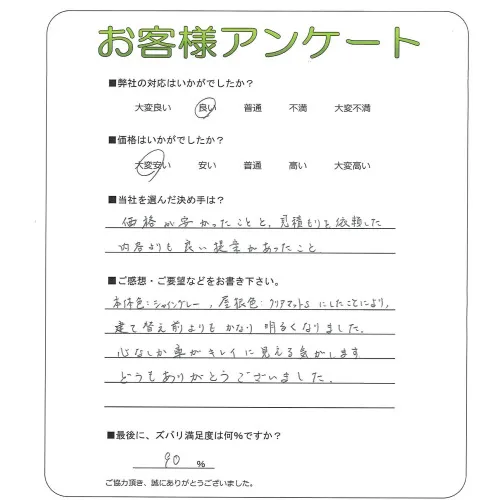 お客様アンケート
■弊社の対応はいかがでしたか？
大変良い 良い 普通 不満 大変不満
■価格はいかがでしたか？
大変安い 安い 普通 高い 大変高い
■当社を選んだ決め手は？
価格が安かったことと、見積もりを依頼した
内容よりも良い提案があったこと
■ご感想・ご要望などをお書き下さい。
本体色：シャイングレー，屋根色：クリアマットS にしたことにより、
建て替え前よりもかなり明るくなりました。
心なしか車がキレイに見える気がします
どうもありがとうございました。
■最後に、ズバリ満足度は何%ですか？
90 %
ご協力頂き、誠にありがとうございました。